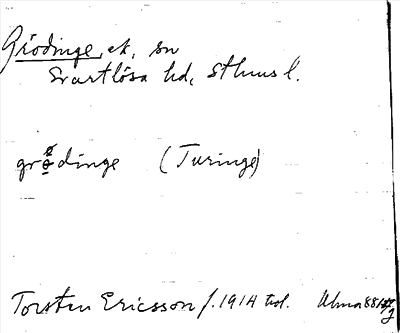 Grödinge, ek, sn
Svartlösa hd, Sthms l.
grö̀dinge (Turinge)
Torsten Ericsson f. 1914 tral. Ulma 881